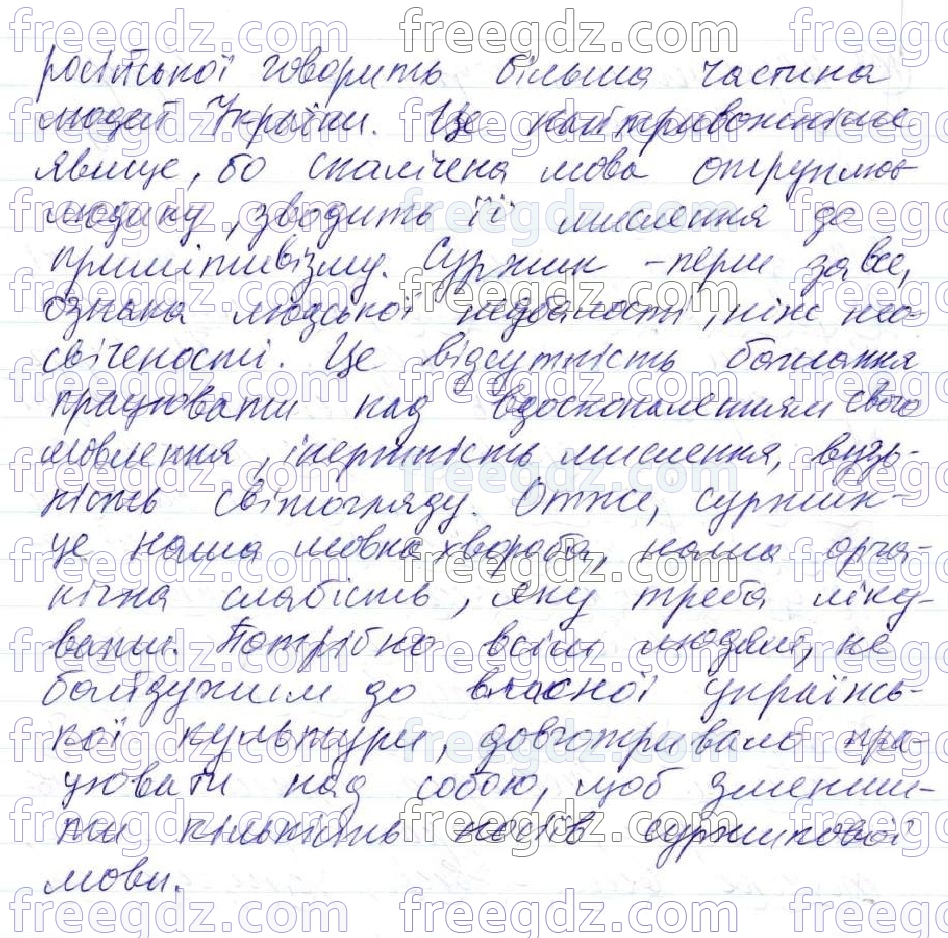 російської говорить більша частина
людей України. Це найтривожніше
явище, бо скалічена мова отруює
людину, зводить її мислення до
примітивізму. Суржик - перш за все,
ознака людської недбалості, ніж нео-
свіченості. Це відсутність бажання
працювати над вдосконаленням свого
мовлення, інертність мислення, вузь-
кість світогляду. Отже, суржик -
це наша мовна хвороба, наша орга-
нічна слабість, яку треба ліку-
вати. Потрібно всім людям, не
байдужим до власної українсь-
кої культури, довготривало пра-
цювати над собою, щоб зменши-
ти кількість носіїв суржикової
мови.
freegdz.com